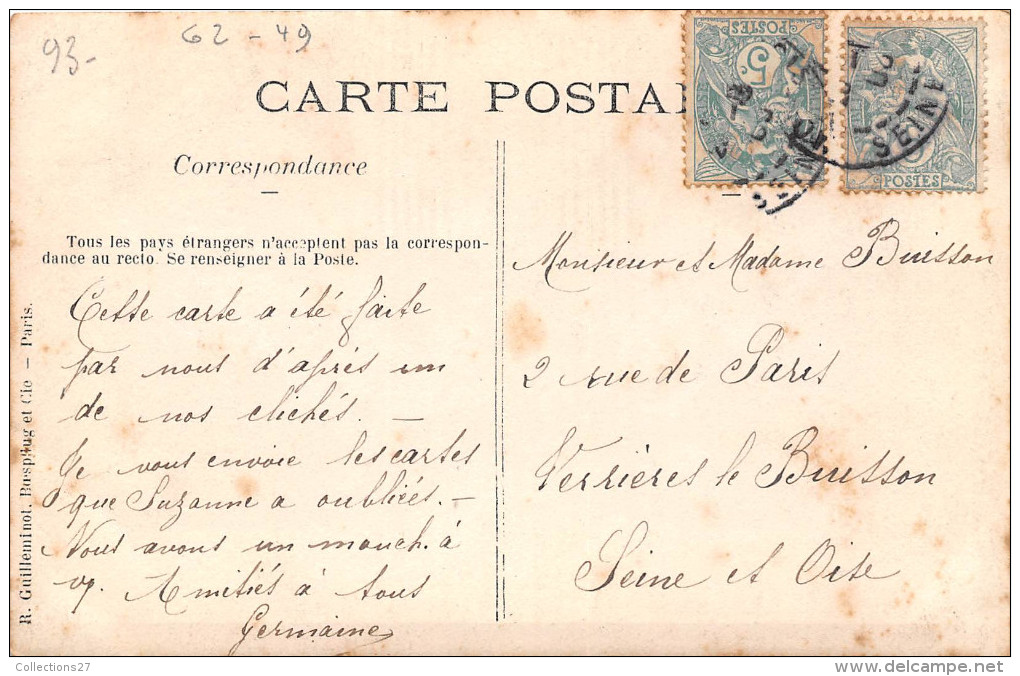 93-
62 - 49
CARTE POSTA
Correspondance
Tous les pays étrangers n'acceptent pas la correspon-
dance au recto. Se renseigner à la Poste.
Cette carte a été faite
par nous d'après un
de nos clichés. —
Je vous envoie les cartes
que Suzanne a oubliées. —
Nous avons un mouch. à
vs. Amitiés à tous
Germaine
R. Guilleminot, Bœspflug et Cie — Paris.
POSTES
5
POSTES
SEINE
Monsieur et Madame Buisson
2 rue de Paris
Verrières le Buisson
Seine et Oise
Collections27
delcampe.net